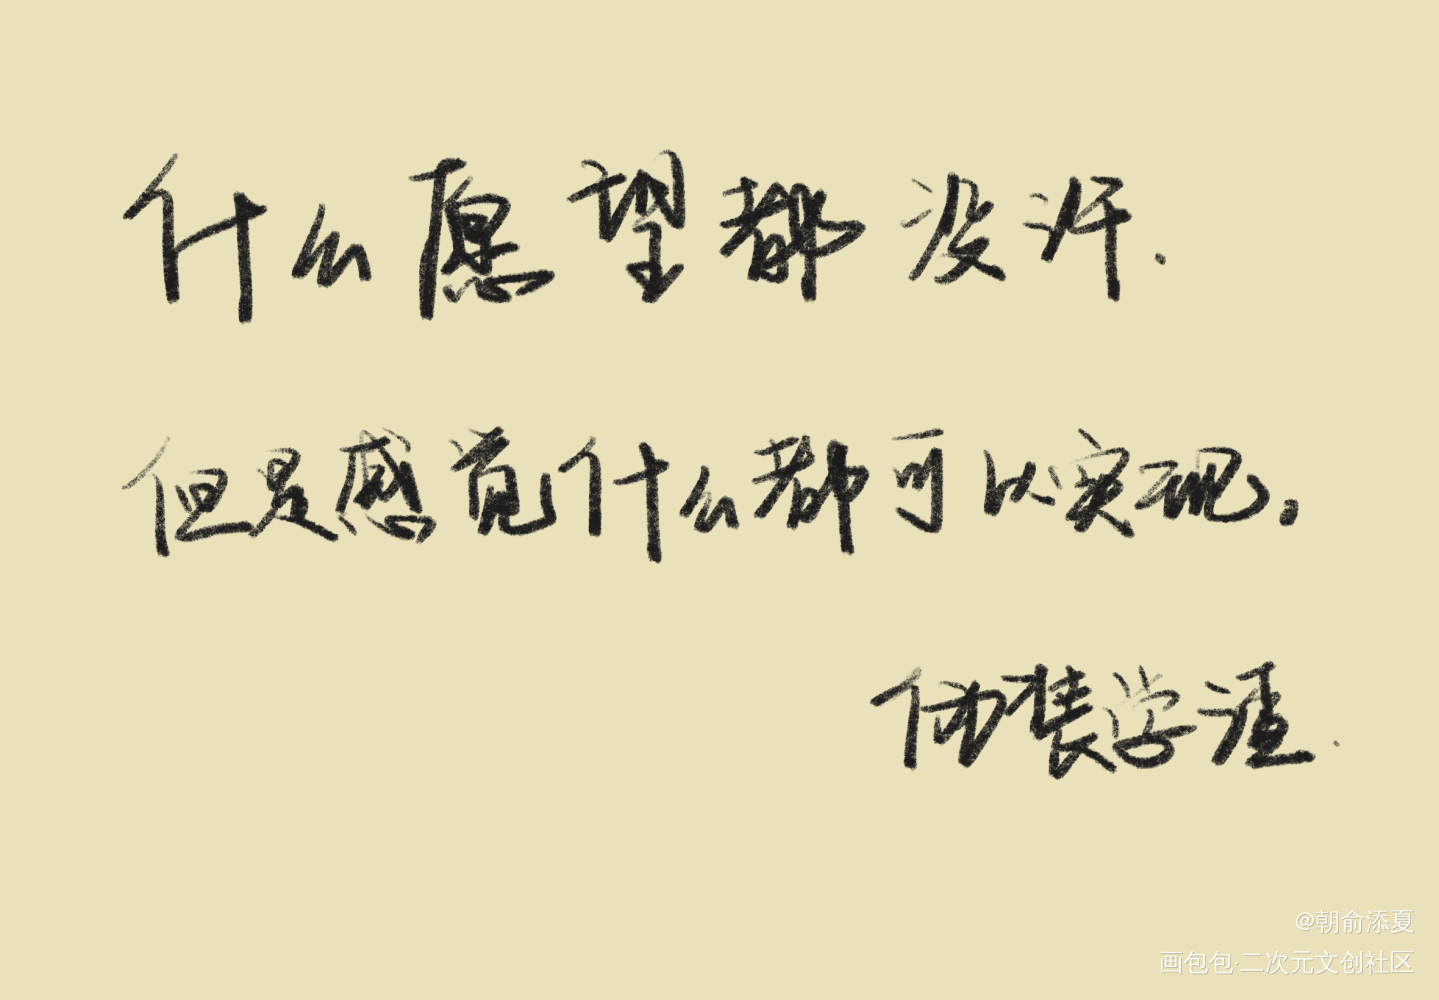 什么愿望都没许.
但是感觉什么都可以实现。
伪装学渣.
@朝俞添夏
画包包·二次元文创社区